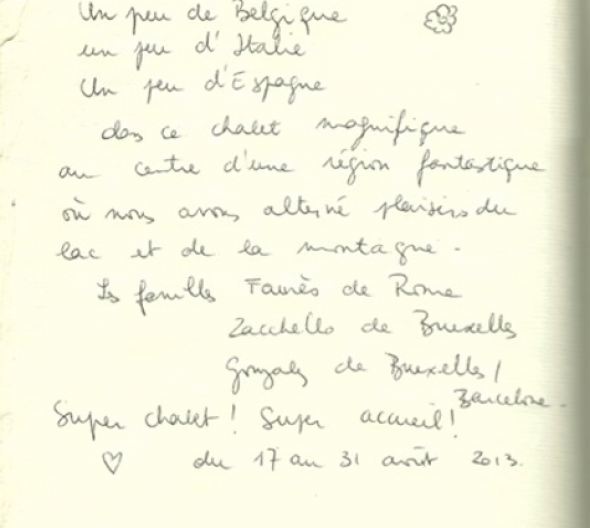 Un peu de Belgique
un peu d'Italie
Un peu d'Espagne
dans ce chalet magnifique
au centre d'une région fantastique
où nous avons alterné plaisirs du
lac et de la montagne.
Les familles Faurès de Rome
Zacchello de Bruxelles
Gonzalez de Bruxelles/
Barcelone.
Super chalet! Super accueil!
♡ du 17 au 31 août 2013.